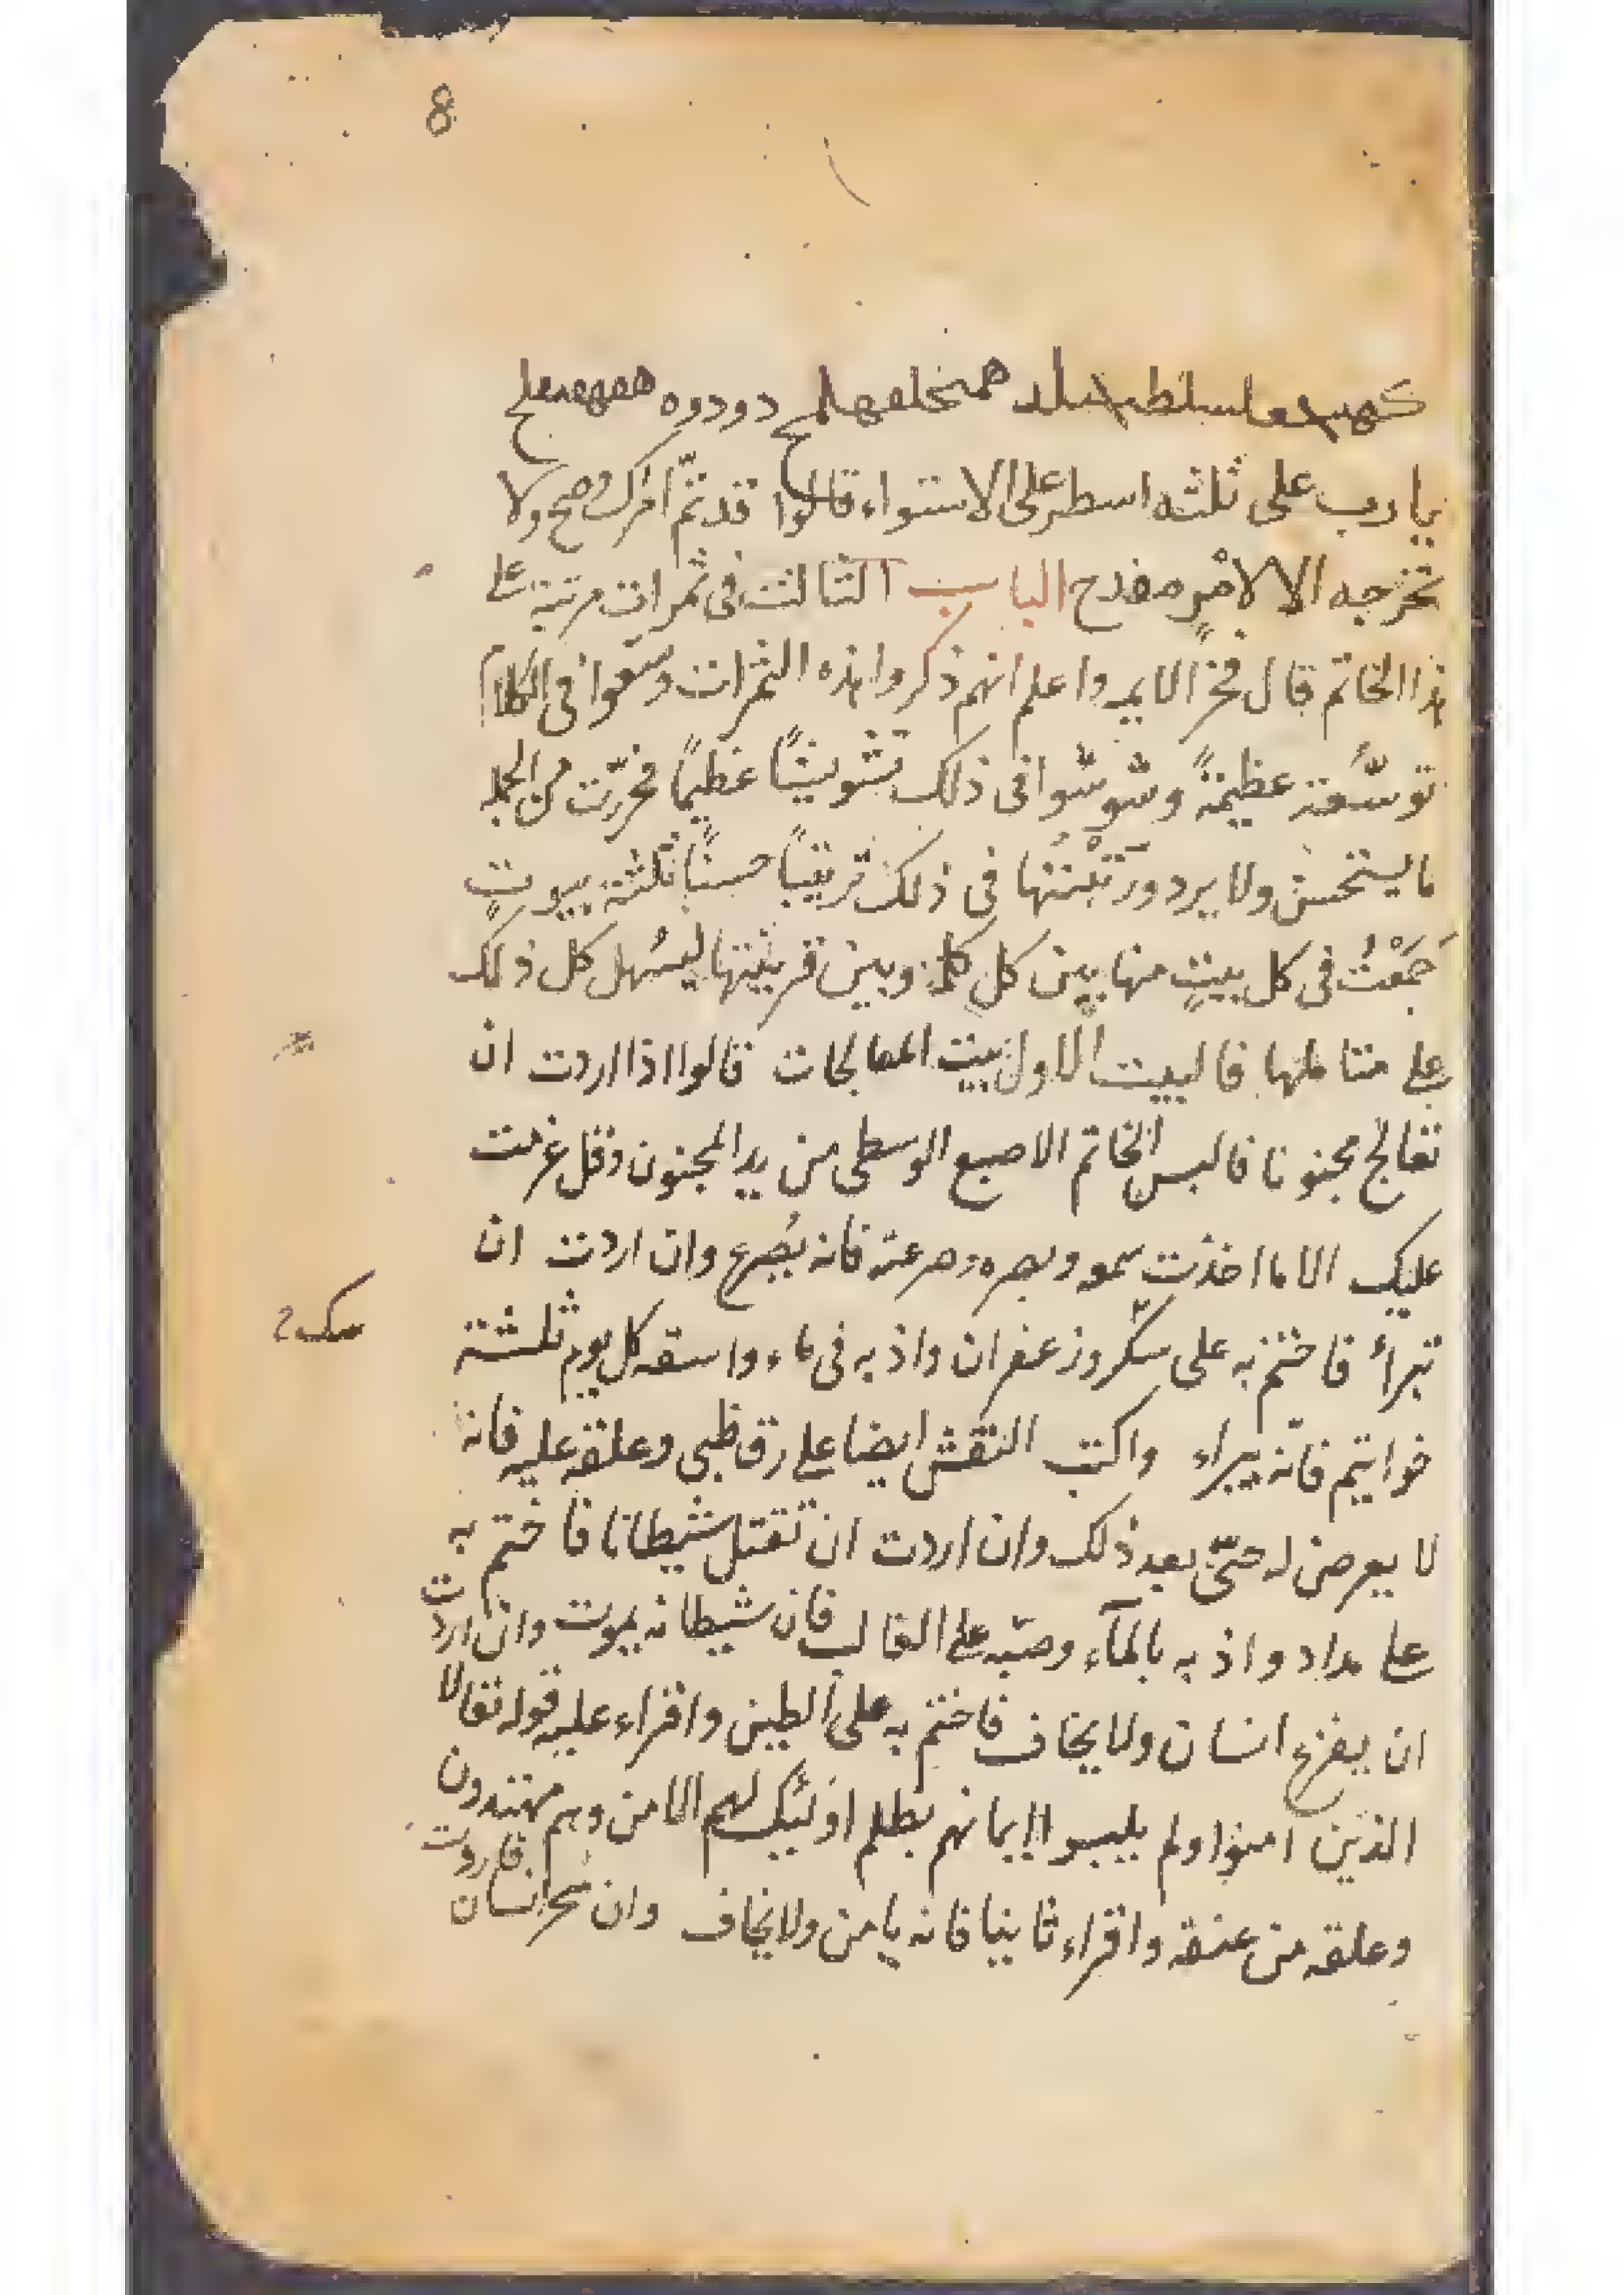 8
دودوه
يا رب على ثلثه اسطر على الاستواء قالوا قد تمّ امرك وصح ولا
تخرجه الا لامرٍ مفدح الباب الثالث فى ثمرات مرتبة على
هذا الخاتم قال فخر الايمه واعلم انهم ذكروا هذه الثمرات وسعوا فى الكلام
توسّعة عظيمةً وشوشوا فى ذلك تشويشًا عظيمًا فحررت من الجملة
ما يستحسن ولا يرد ورتبتها فى ذلك ترتيبًا حسنًا ثلثة بيوتٍ
جمعْتُ فى كل بيتٍ منها بين كل كلمة وبين قرينتها ليسهل كل ذلك
على متاملها فالبيت الاول بيت المعالجات قالوا اذا اردت ان
تعالج مجنونا فالبس الخاتم الاصبع الوسطى من يد المجنون وقل عزمت
عليك الا ما اخذت سمعه وبصره وصرعته فانه يصرع وان اردت ان
تبرأ فاختم به على سكّر وزعفران واذبه فى ماء واسقه كل يوم ثلثة
سكر
خواتيم فانّه يبراء واكتب النقش ايضا على رق ظبى وعلقه عليه فانه
لا يعرض له حتّى بعد ذلك وان اردت ان تقتل شيطانا فاختم به
على مداد واذبه بالمآء وصبه على القالب فان شيطانه يموت وان اردت
ان يفزع انسان ولا يخاف فاختم به على الطين واقراء عليه قوله تعالا
الذين امنوا ولم يلبسوا ايمانهم بظلم اولئيك لهم الامن وهم مهتدون
وعلقه من عنقه واقراء ثانيا فانه يامن ولا يخاف وان سُحر انسان